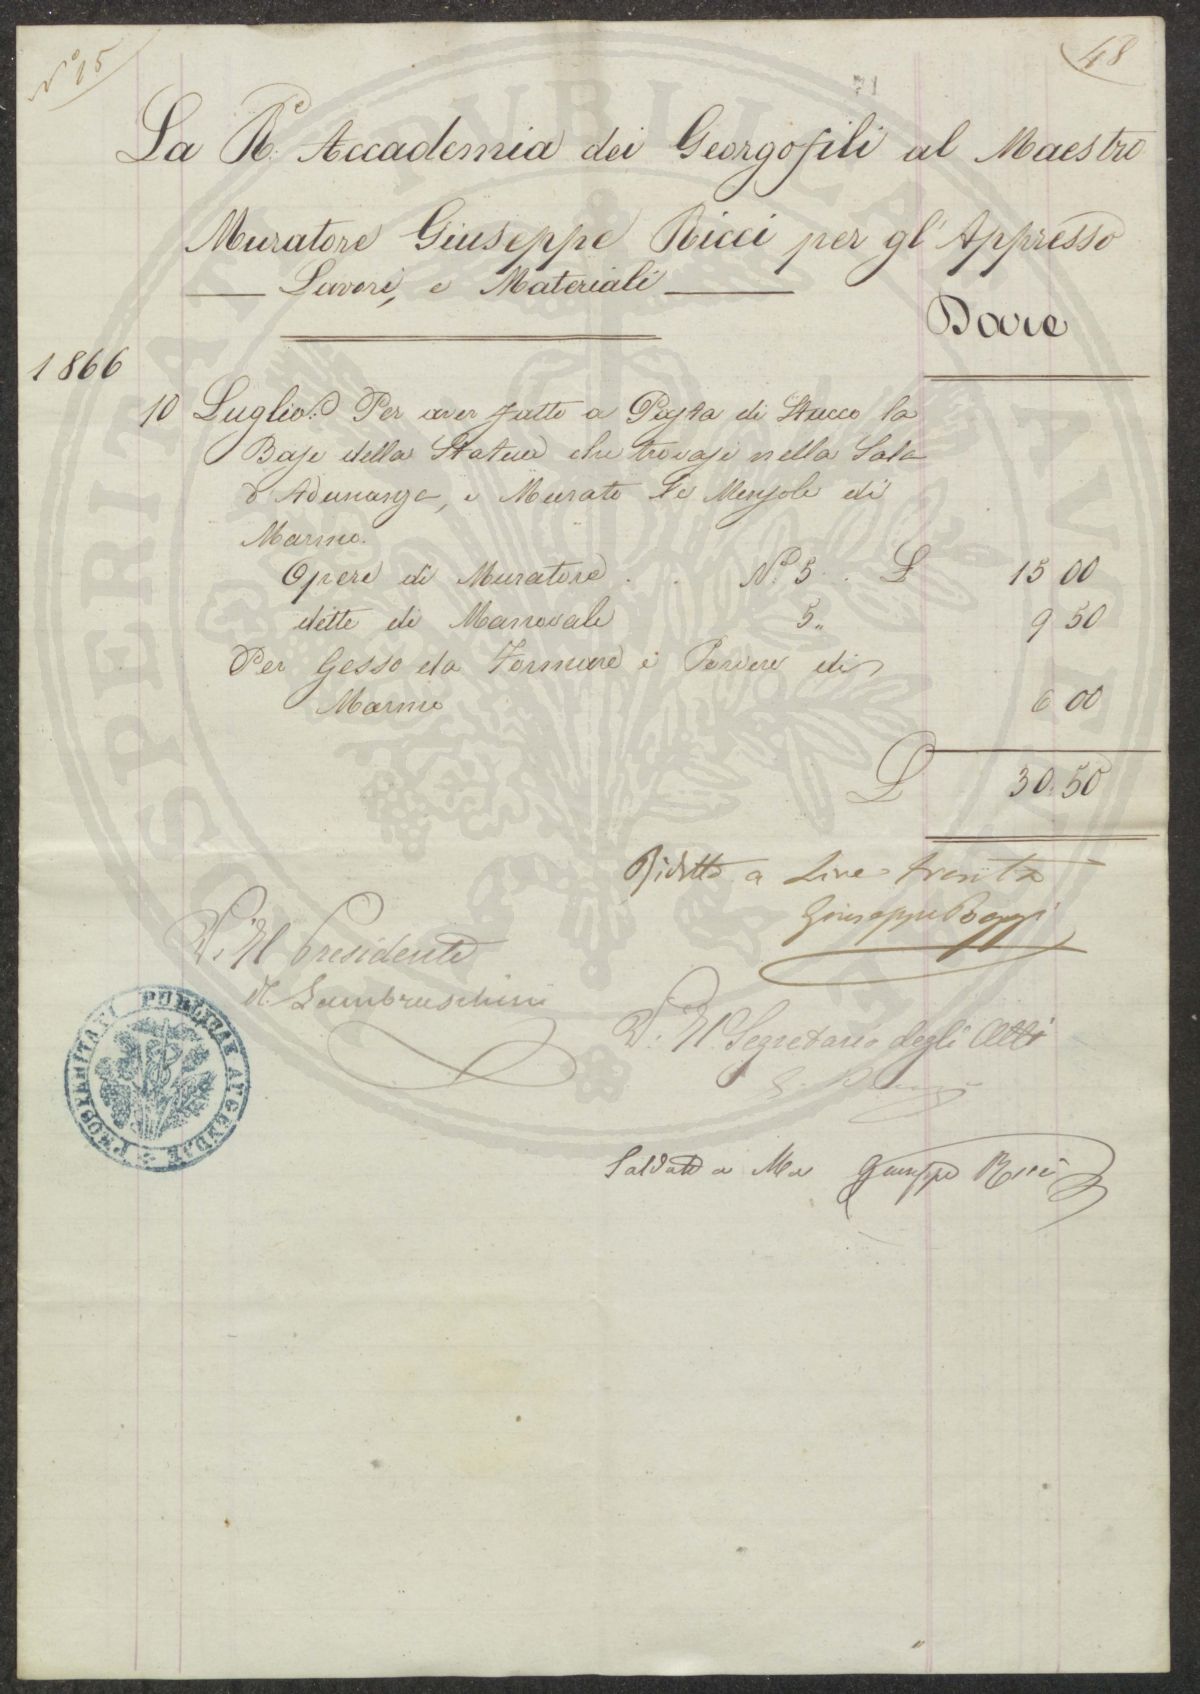 N.º 15
48
71
La R.e Accademia dei Georgofili al Maestro
Muratore Giuseppe Ricci per gl'Appresso
Lavori, e Materiali
Dare
1866
10 Luglio. Per aver fatto a Pasta di Stucco la
Base della Statua che trovasi nella Sala
d'Adunanza, e Murato le Mensole di
Marmo.
Opere di Muratore . . N.º 5 . L 15 00
dette di Manovale 5 „ 9 50
Per Gesso da Formare e Porvere di
Marmo 6 00
L 30.50
Ridotto a Lire trenta
Giuseppe Poggi
V. Il Presidente
R. Lambruschini
V. Il Segretario degli Atti
Saldato a Me Giuseppe Ricci
PROSPERITATI PUBLICAE AUGENDAE